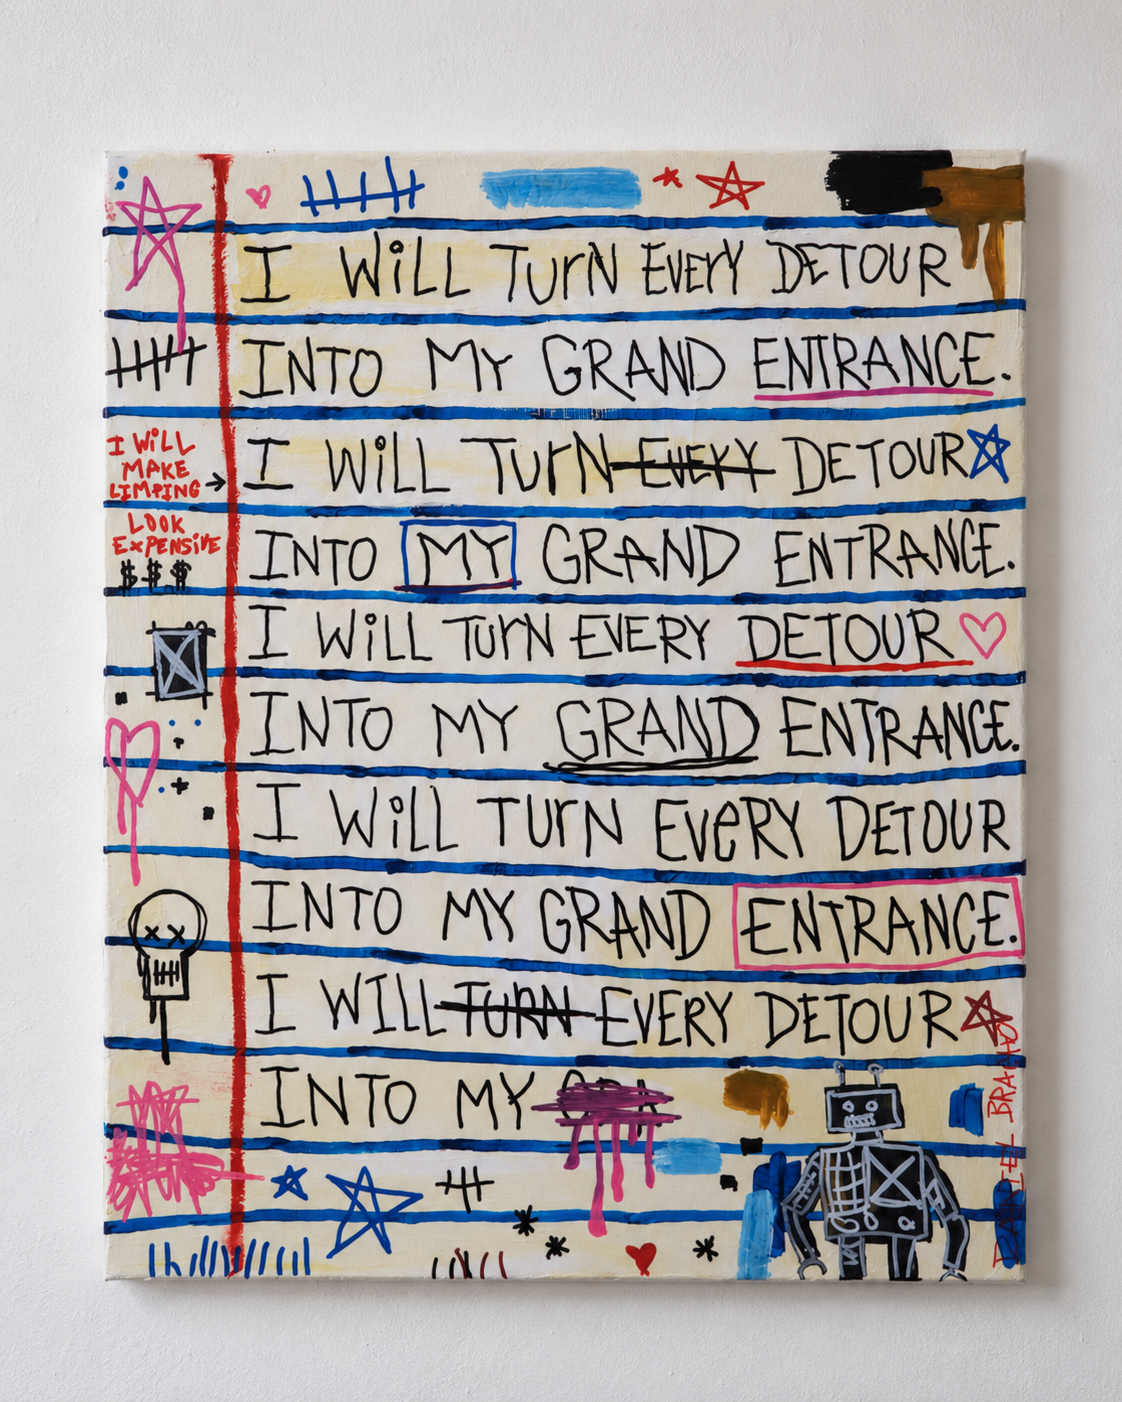 I WiLL TUrN EVErY DETOUR
INTO MY GRAND ENTRANCE.
I WiLL TUrN EVERY DETOUR
INTO MY GRAND ENTRANCE.
I WiLL TUrN EVERY DETOUR
INTO MY GRAND ENTRANCE.
I WiLL TUrN EVeRY DETOUR
INTO MY GRAND ENTRANCE.
I WILL TURN EVERY DETOUR
INTO MY GRA
I WiLL
MAKE
LIMPING
LOOK
EXPENSiVE
$ $ $
DANIEL BRAMO